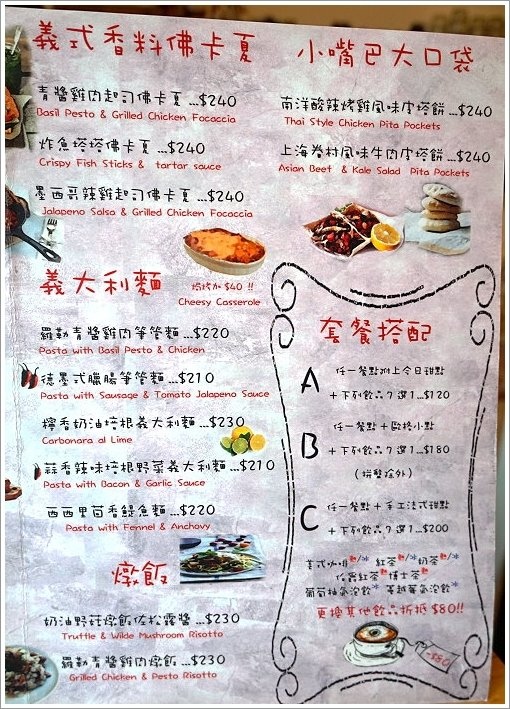 義式香料佛卡夏
青醬雞肉起司佛卡夏 ...$240
Basil Pesto & Grilled Chicken Focaccia
炸魚塔塔佛卡夏 ...$240
Crispy Fish Sticks & tartar sauce
墨西哥辣雞起司佛卡夏 ...$240
Jalapeno Salsa & Grilled Chicken Focaccia
義大利麵
焗烤加 $40 !!
Cheesy Casserole
羅勒青醬雞肉筆管麵 ...$220
Pasta with Basil Pesto & Chicken
德墨式臘腸筆管麵 ...$210
Pasta with Sausage & Tomato Jalapeno Sauce
檸香奶油培根義大利麵 ...$230
Carbonara al Lime
蒜香辣味培根野菜義大利麵 ...$210
Pasta with Bacon & Garlic Sauce
西西里茴香鯷魚麵 ...$220
Pasta with Fennel & Anchovy
燉飯
奶油野菇燉飯佐松露醬 ...$230
Truffle & Wilde Mushroom Risotto
羅勒青醬雞肉燉飯 ...$230
Grilled Chicken & Pesto Risotto
小嘴巴大口袋
南洋酸辣烤雞風味皮塔餅 ...$240
Thai Style Chicken Pita Pockets
上海眷村風味牛肉皮塔餅 ...$240
Asian Beef & Kale Salad Pita Pockets
套餐搭配
A
任一餐點附上今日甜點
+下列飲品7選1...$120
B
任一餐點+歐格小點
+下列飲品7選1...$180
(拼盤除外)
C
任一餐點+手工法式甜點
+下列飲品7選1...$200
美式咖啡熱/冰 紅茶熱/冰奶茶熱/冰
伯爵紅茶熱博士茶熱
葡萄柚氣泡飲冰 蔓越莓氣泡飲冰
更換其他飲品折抵 $80!!
-$80